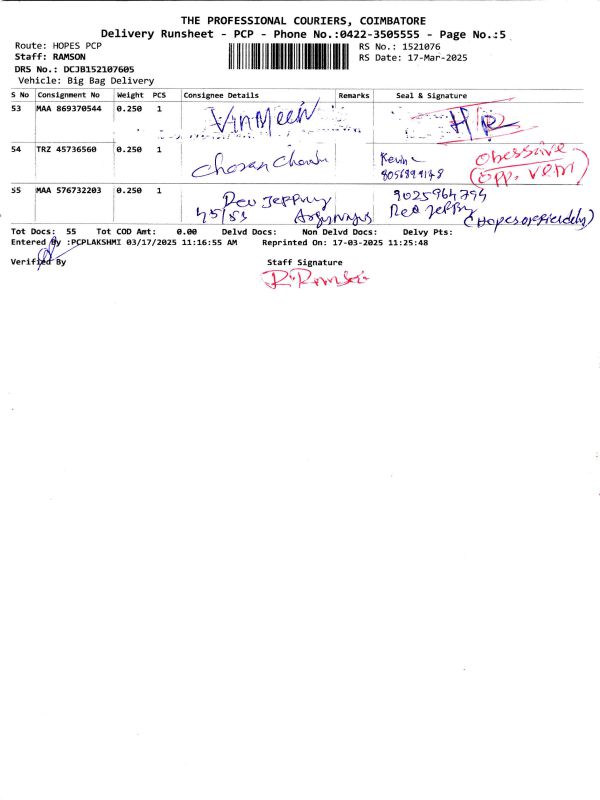 THE PROFESSIONAL COURIERS, COIMBATORE
Delivery Runsheet - PCP - Phone No.:0422-3505555 - Page No.:5
Route: HOPES PCP
RS No.: 1521076
Staff: RAMSON
RS Date: 17-Mar-2025
DRS No.: DCJB152107605
Vehicle: Big Bag Delivery
S No Consignment No Weight PCS Consignee Details Remarks Seal & Signature
53 MAA 869370544 0.250 1 H/R
54 TRZ 45736560 0.250 1 Kevin
55 MAA 576732203 0.250 1 9025964794
Tot Docs: 55 Tot COD Amt: 0.00 Delvd Docs: Non Delvd Docs: Delvy Pts:
Entered By :PCPLAKSHMI 03/17/2025 11:16:55 AM Reprinted On: 17-03-2025 11:25:48
Verified By Staff Signature